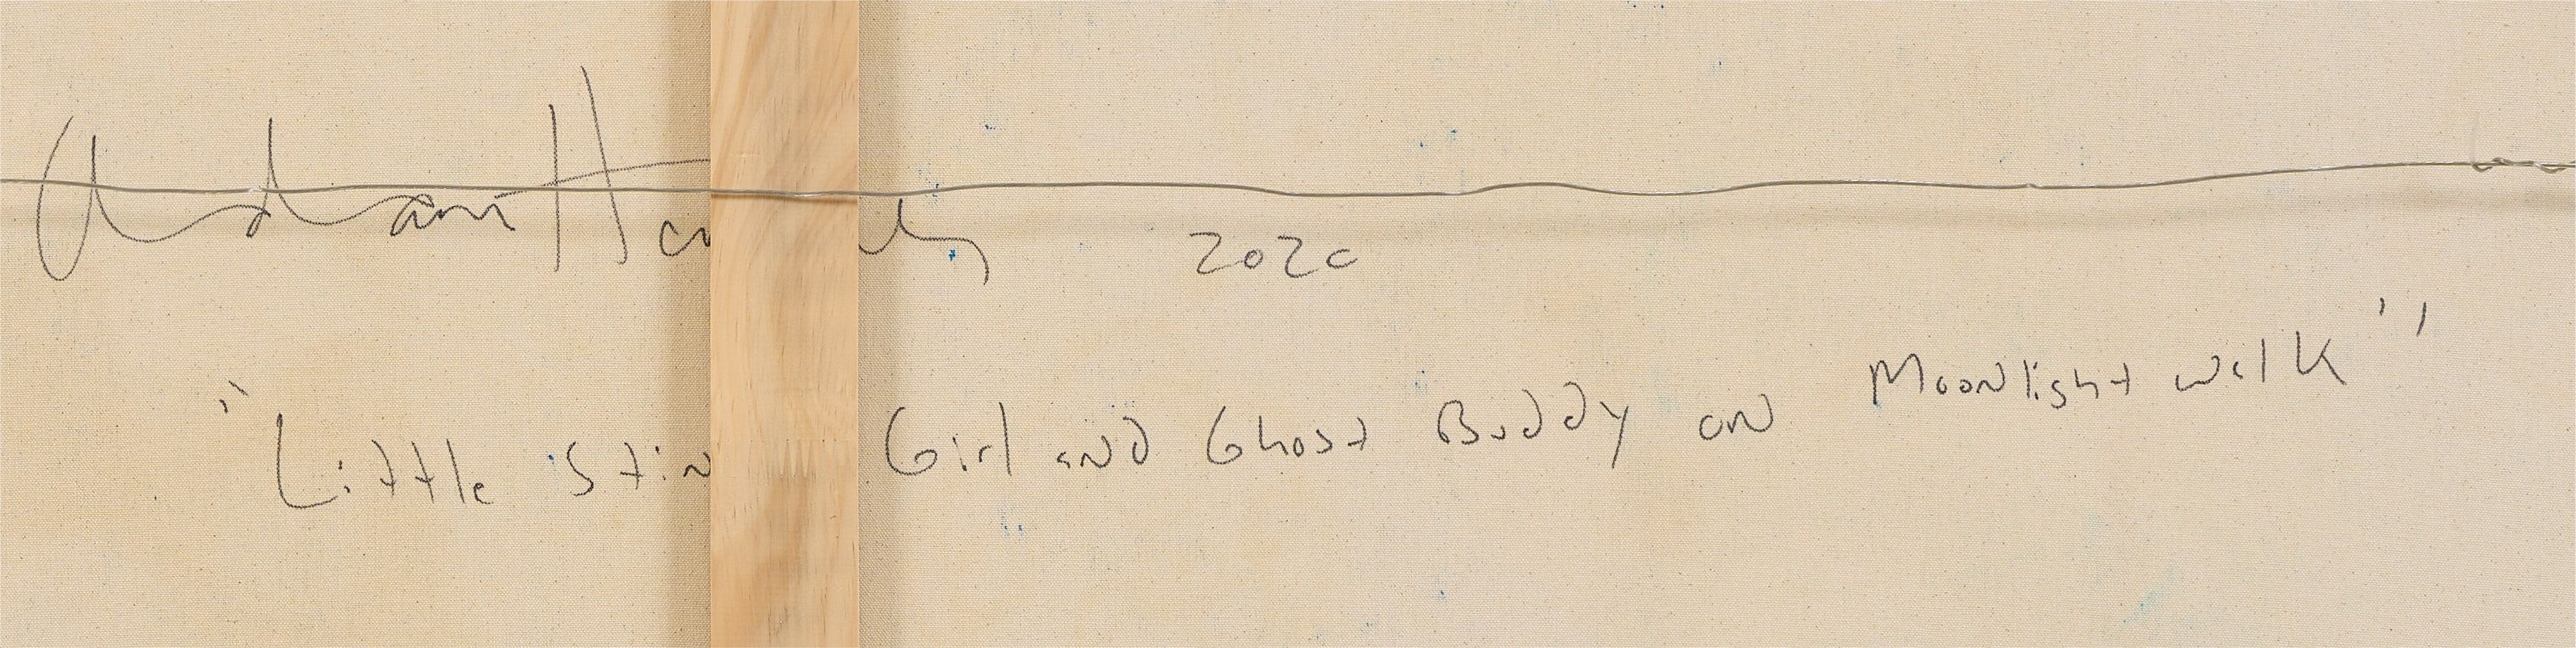 2020
"Little Stin Girl and Ghost Buddy on Moonlight walk"